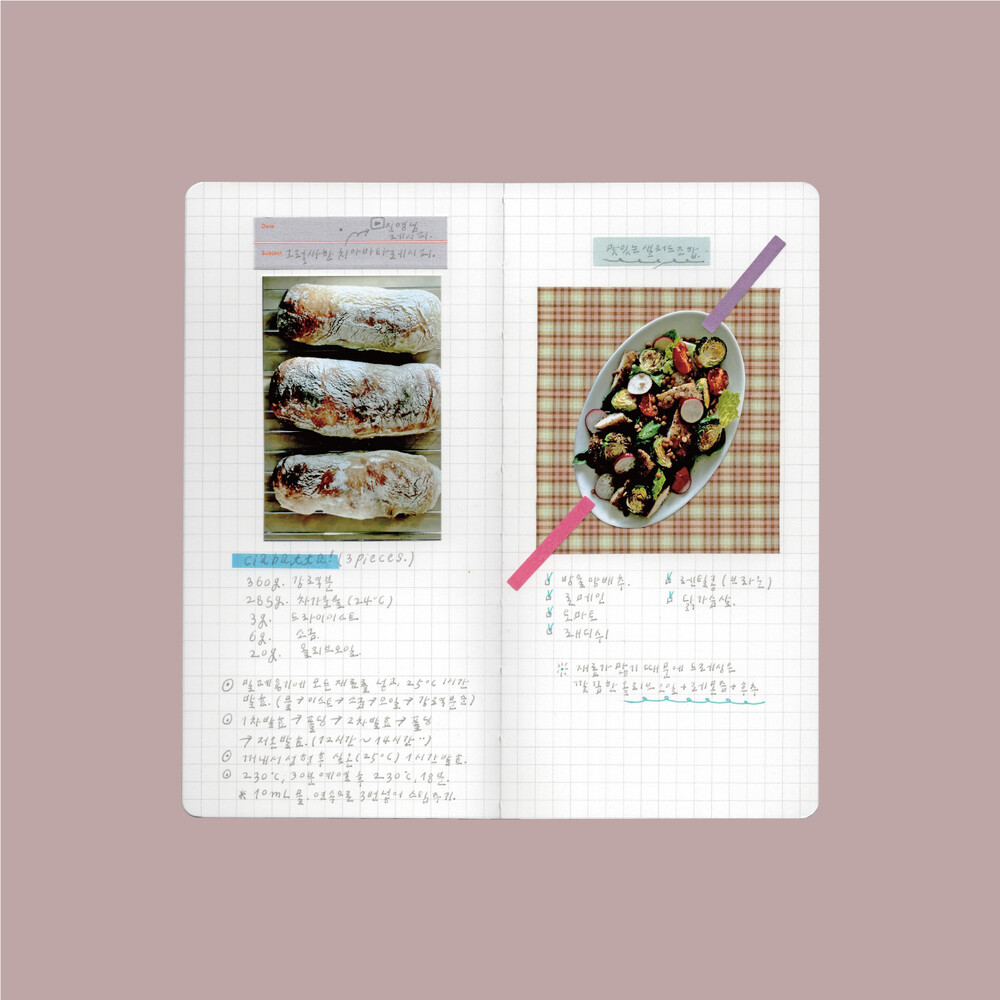 Date
진영님
레시피.
Subject 그럴싸한 치아바타 레시피.
ciabatta! (3 pieces.)
360g. 강력분
285g. 차가운물 (24℃)
3g. 드라이이스트
6g. 소금.
20g. 올리브오일.
밀폐용기에 모든 재료를 넣고, 25℃ 1시간
발효. (물→이스트→소금→오일→강력분 순)
1차발효 → 폴딩 → 2차발효 → 폴딩
→ 저온발효. (12시간 ~ 14시간..)
꺼내서 성형 후 실온(25℃) 1시간 발효.
230℃, 30분 예열 후 230℃, 18분.
* 10mL 물. 3번 넣어 스팀주기.
맛있는 샐러드 조합.
방울양배추.
로메인
토마토
래디쉬
렌틸콩 (브라운)
닭가슴살.
재료가 많기 때문에 드레싱은
깔끔한 올리브오일 + 레몬즙 + 후추